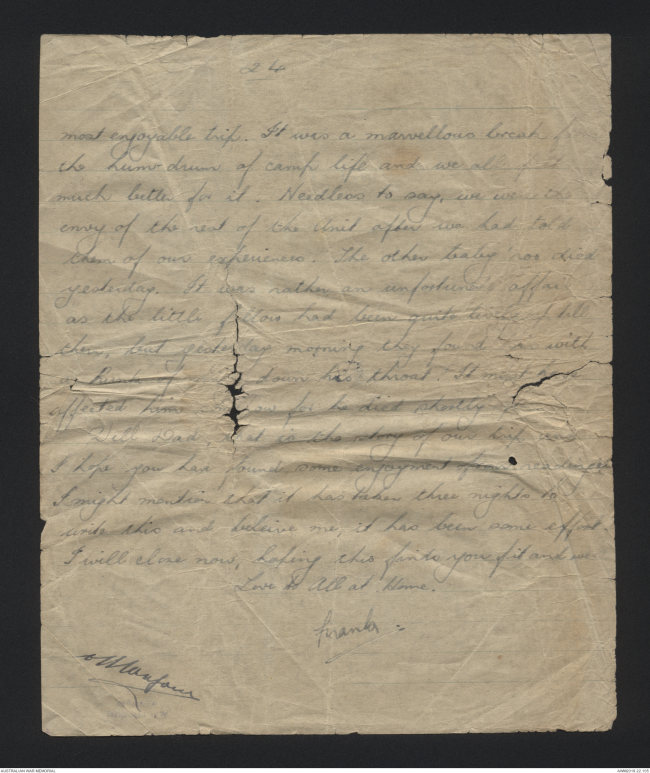 24
most enjoyable trip. It was a marvellous break from
the hum-drum of camp life and we all felt
much better for it. Needless to say, we were the
envy of the rest of the Unit after we had told
them of our experiences. The other baby 'roo died
yesterday. It was rather an unfortunate affair
as the little fellow had been quite
then, but yesterday morning they found him with
a down his throat. It must
affected him for he died shortly
Well Dad, that is the story of our trip and
I hope you have found some enjoyment reading
I might mention that it has taken three nights to
write this and beleive me, it has been some effort.
I will close now, hoping this finds you fit and well
Love to All at Home.
Frank
AUSTRALIAN WAR MEMORIAL